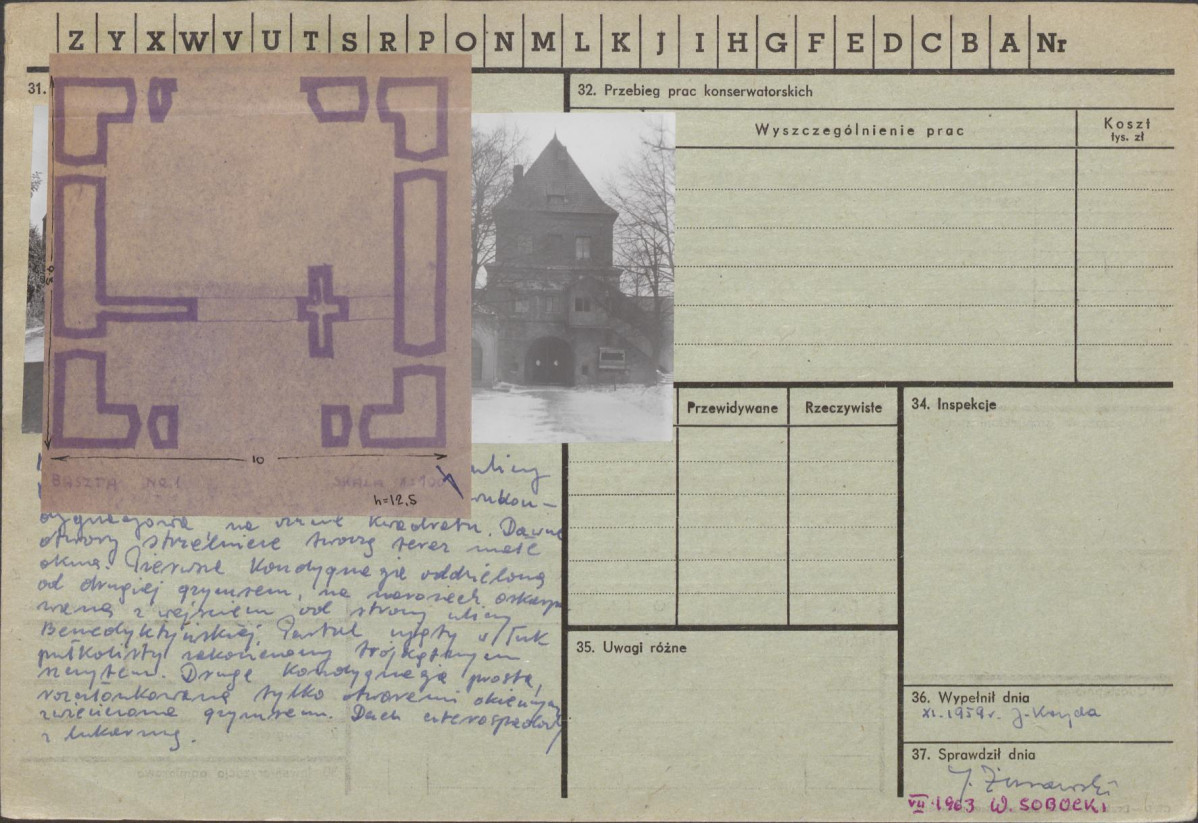 Z Y X W V U T S R P O N M L K J I H G F E D C B A Nr
31.
10
BASZTA NR. 1 SKALA 1:100
h=12,5
ulicy
na rzucie kwadratu. Dawne
otwory strzelnicze tworzą teraz małe
okna. Pierwsza kondygnacja oddzielona
od drugiej gzymsem, na narożach oskarpo
wana z wejściem od strony ulicy
Benedyktyńskiej. Portal ujęty w łuk
półkolisty zakończony trójkątnym
szczytem. Druga kondygnacja prosta,
rozczłonkowana tylko otworami okiennymi
zwieńczona gzymsem. Dach czterospadowy
z lukarną.
32. Przebieg prac konserwatorskich
Wyszczególnienie prac
Koszt
tys. zł
Przewidywane
Rzeczywiste
34. Inspekcje
35. Uwagi różne
36. Wypełnił dnia
XI. 1959 r. J. Kayda
37. Sprawdził dnia
J. Żurawski
VII 1963 W. SOBOCKI